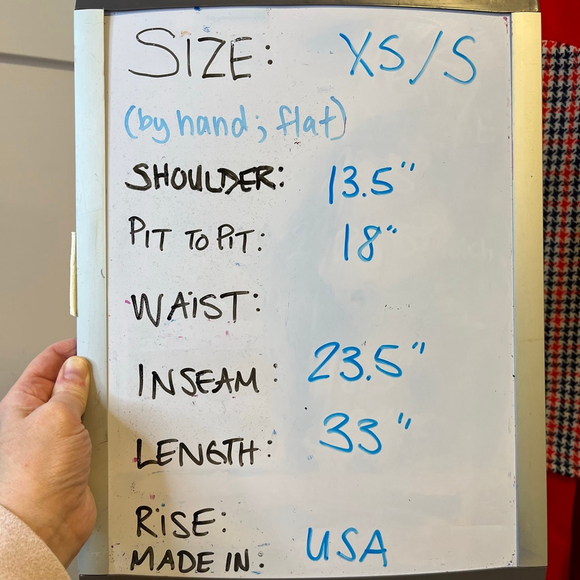 SIZE: XS/S
(by hand; flat)
SHOULDER: 13.5"
PIT TO PIT: 18"
WAIST:
INSEAM: 23.5"
LENGTH: 33"
RISE:
MADE IN: USA